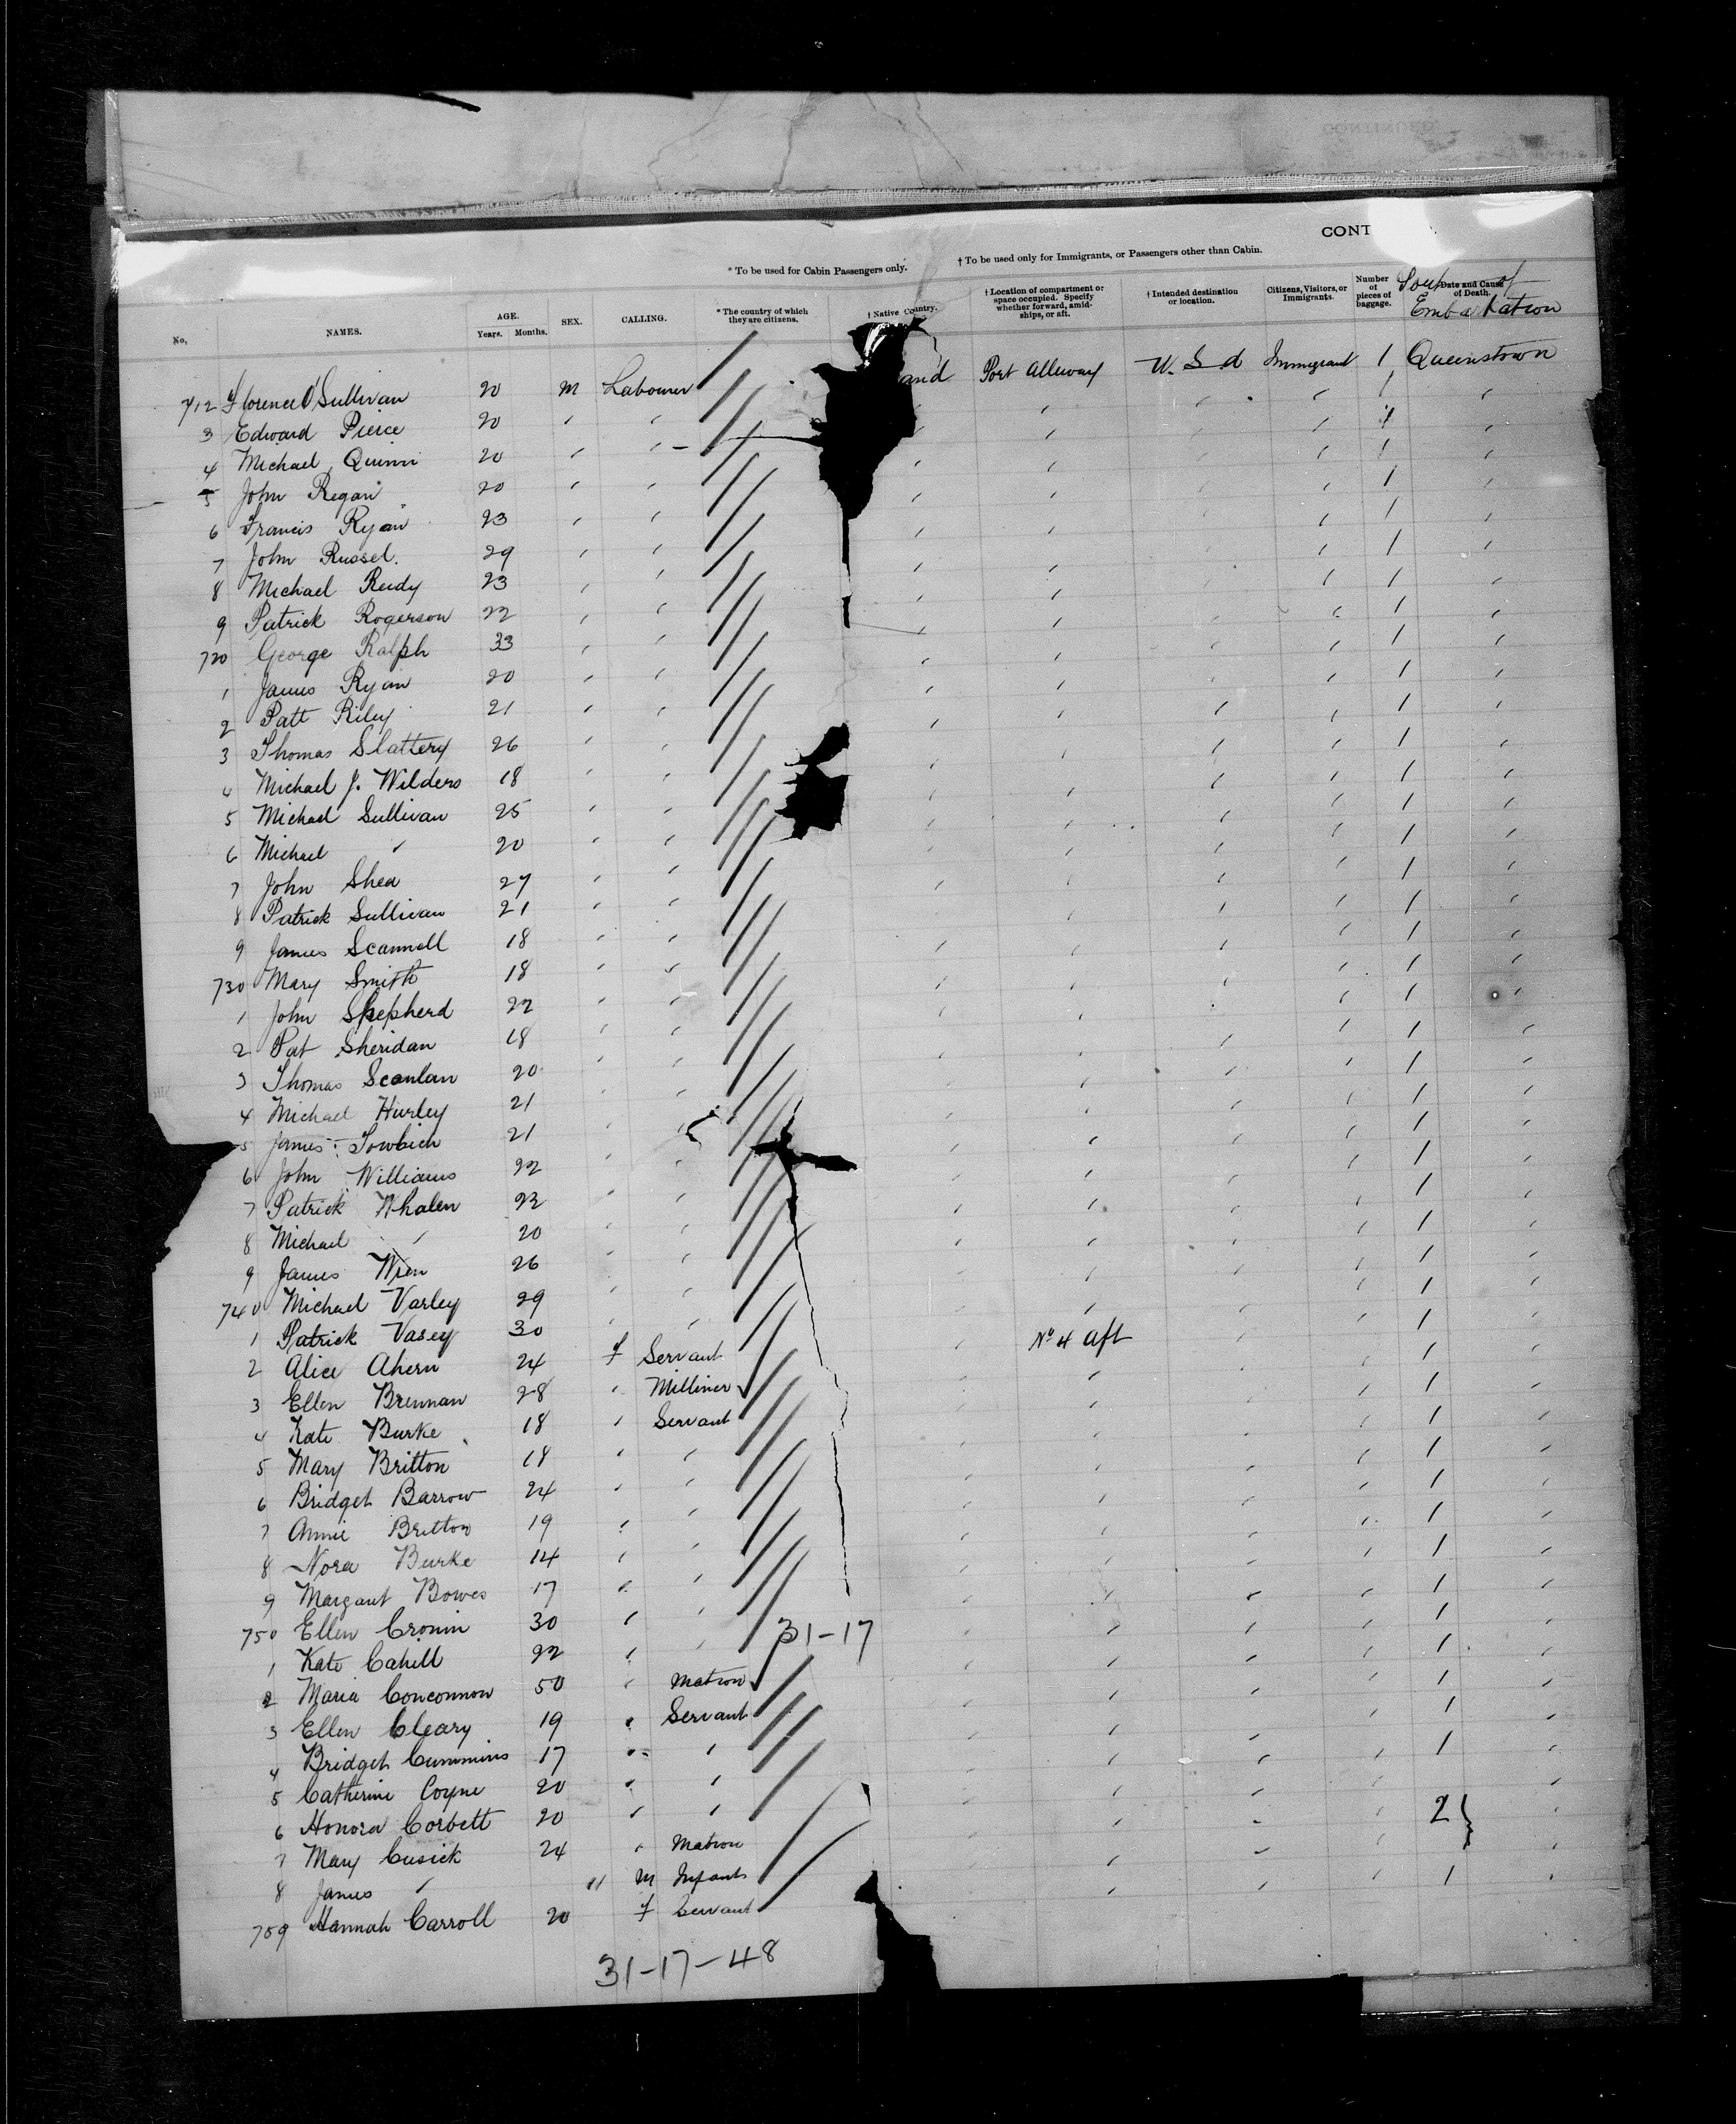 CONT
* To be used for Cabin Passengers only. † To be used only for Immigrants, or Passengers other than Cabin.
No. NAMES. AGE. Years. Months. SEX. CALLING. * The country of which they are citizens. † Native Country. † Location of compartment or space occupied. Specify whether forward, amidships, or aft. † Intended destination or location. Citizens, Visitors, or Immigrants. Number of pieces of baggage. Date and Cause of Death.
of Embarkation
712 Florence O'Sullivan 20 M Labourer and Port Alleway U. S. d Immigrant 1 Queenstown
3 Edward Pierce 20 " " " " " " 1 "
4 Michael Quinn 20 " " " " " " 1 "
5 John Regan 20 " " " " " " 1 "
6 Francis Ryan 23 " " " " " " 1 "
7 John Russel. 29 " " " " " " 1 "
8 Michael Reidy 23 " " " " " " 1 "
9 Patrick Rogerson 22 " " " " " " 1 "
720 George Ralph 33 " " " " " " 1 "
1 James Ryan 20 " " " " " " 1 "
2 Patt Riley 21 " " " " " " 1 "
3 Thomas Slattery 26 " " " " " " 1 "
4 Michael J. Wilders 18 " " " " " " 1 "
5 Michael Sullivan 25 " " " " " " 1 "
6 Michael " 20 " " " " " " 1 "
7 John Shea 27 " " " " " " 1 "
8 Patrick Sullivan 21 " " " " " " 1 "
9 James Scannell 18 " " " " " " 1 "
730 Mary Smith 18 " " " " " " 1 "
1 John Shepherd 22 " " " " " " 1 "
2 Pat Sheridan 18 " " " " " " 1 "
3 Thomas Scanlan 20 " " " " " " 1 "
4 Michael Hurley 21 " " " " " " 1 "
5 James 21 " " " " " " 1 "
6 John Williams 22 " " " " " " 1 "
7 Patrick Whalen 22 " " " " " " 1 "
8 Michael " 20 " " " " " " 1 "
9 James Wren 26 " " " " " " 1 "
740 Michael Varley 29 " " " " " " 1 "
1 Patrick Vasey 30 " " " " " " 1 "
2 Alice Ahern 24 f Servant " No 4 aft " " 1 "
3 Ellen Brennan 28 " Milliner " " " " 1 "
4 Kate Burke 18 " Servant " " " " 1 "
5 Mary Britton 18 " " " " " " 1 "
6 Bridget Barrow 24 " " " " " " 1 "
7 Annie Britton 19 " " " " " " 1 "
8 Nora Burke 14 " " " " " " 1 "
9 Margaret Bowes 17 " " " " " " 1 "
750 Ellen Cronin 30 " " " " " " 1 "
31-17
1 Kate Cahill 22 " " " " " " 1 "
2 Maria Conconnon 50 " Matron " " " " 1 "
3 Ellen Cleary 19 " Servant " " " " 1 "
4 Bridget Cummins 17 " " " " " " 1 "
5 Catherine Coyne 20 " " " " " " 1 "
6 Honora Corbett 20 " " " " " " 1 "
7 Mary Cusick 24 " Matron " " " " 2 } "
8 James " 11 M Infant " " " " "
759 Hannah Carroll 20 f Servant " " " " 1 "
31-17-48